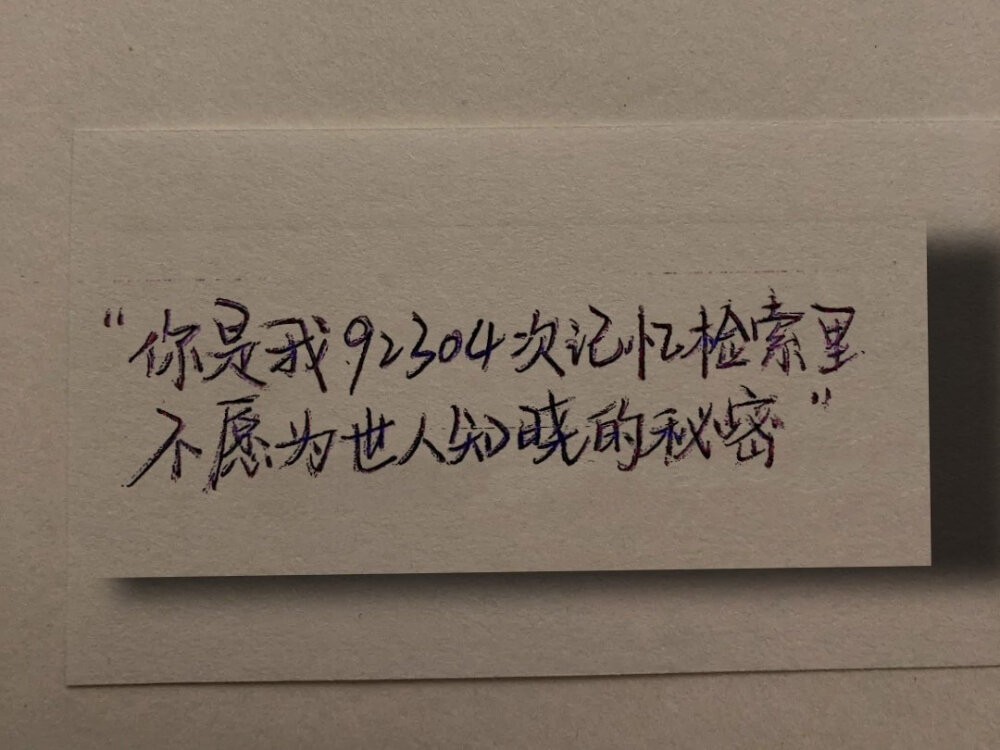 “你是我92304次记忆检索里
不愿为世人知晓的秘密”